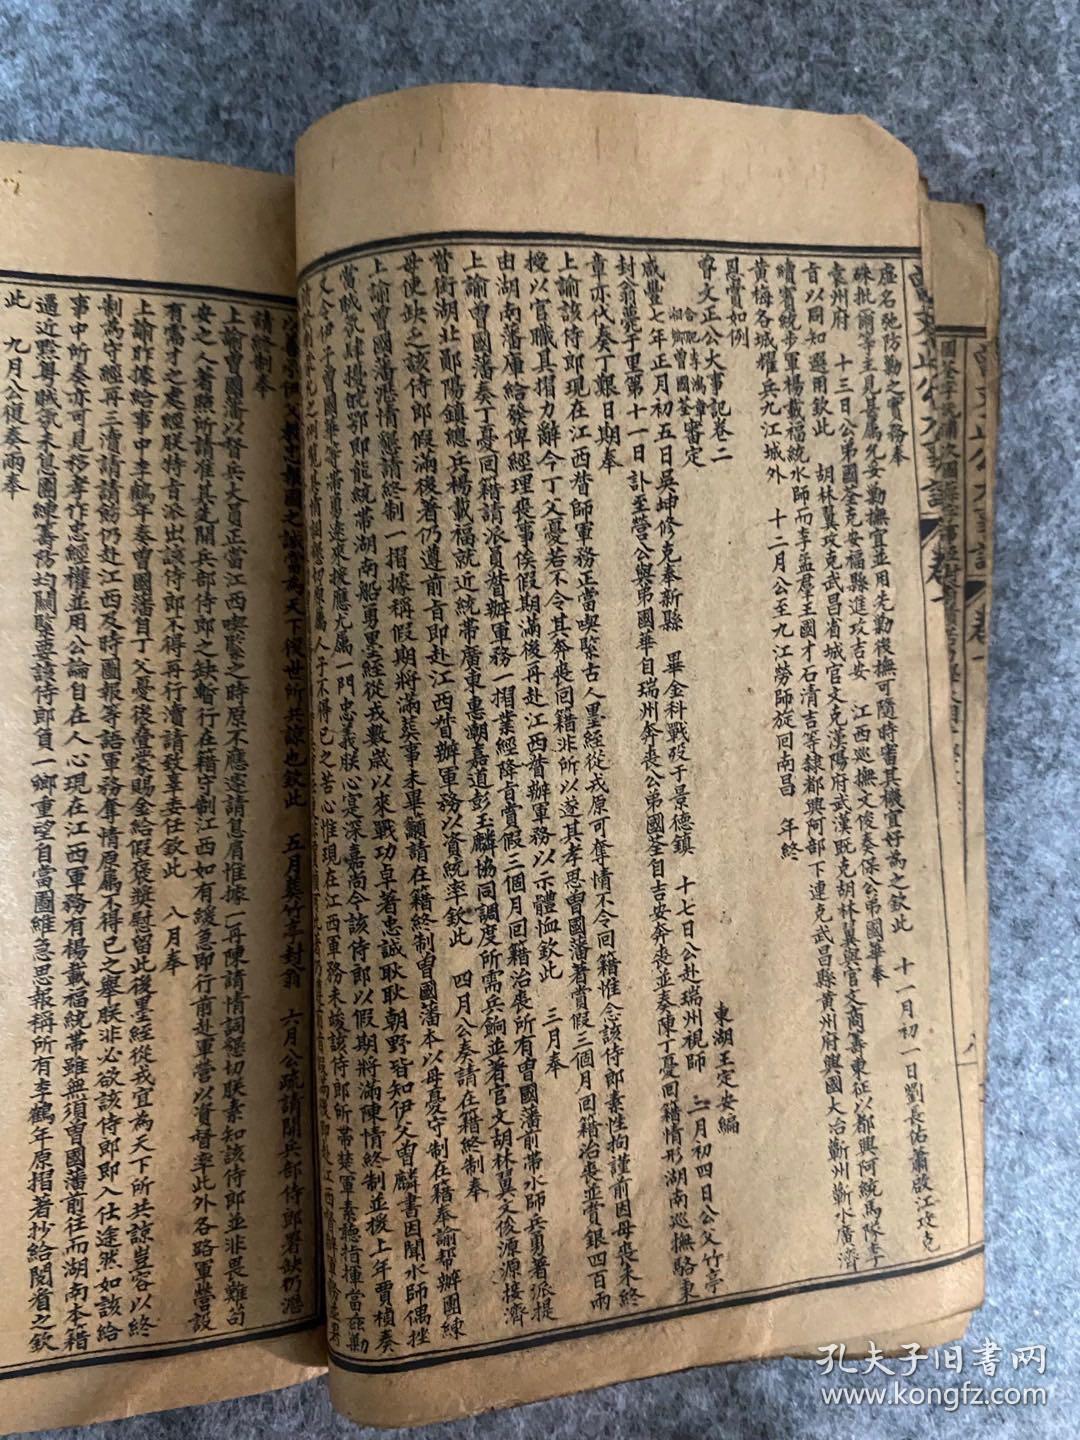 虛名弛防勦之實務奉
硃批爾等主見甚屬允妥勦撫宜並用先勦後撫可隨時審其機宜好為之欽此　十一月初一日劉長佑蕭啟江攻克
袁州府　十三日公弟國荃克安福縣進攻吉安　江西巡撫文俊奏保公弟國華奉
旨以同知選用欽此　胡林翼攻克武昌省城官文克漢陽府武漢既克胡林翼與官文商籌東征以都興阿統馬隊李
續賓統步軍楊載福統水師而李孟羣王國才石清吉等隸都興阿部下連克武昌縣黃州府興國大冶蘄州蘄水廣濟
黃梅各城耀兵九江城外　十二月公至九江勞師旋回南昌　年終
恩賞如例
曾文正公大事記卷二
合肥李鴻章
湘鄉曾國荃審定
東湖王定安編
咸豐七年正月初五日吳坤修克奉新縣　畢金科戰歿于景德鎮　十七日公赴瑞州視師　二月初四日公父竹亭
封翁薨于里第十一日訃至營公與弟國華自瑞州奔喪公弟國荃自吉安奔喪並奏陳丁憂回籍情形湖南巡撫駱秉
章亦代奏丁艱日期奉
上諭該侍郎現在江西督師軍務正當喫緊古人墨絰從戎原可奪情不令回籍惟念該侍郎素性拘謹前因母喪未終
授以官職具摺力辭今丁父憂若不令其奔喪回籍非所以遂其孝思曾國藩著賞假三個月回籍治喪並賞銀四百兩
由湖南藩庫給發俾經理喪事俟假期滿後再赴江西督辦軍務以示體恤欽此　三月奉
上諭曾國藩奏丁憂回籍請派員督辦軍務一摺業經降旨賞假三個月回籍治喪所有曾國藩前帶水師兵勇著派提
督銜湖北鄖陽鎮總兵楊載福就近統帶廣東惠潮嘉道彭玉麟協同調度所需兵餉並著官文胡林翼文俊源源接濟
毋使缺乏該侍郎假滿後著仍遵前旨即赴江西督辦軍務以資統率欽此　四月公奏請在籍終制奉
上諭曾國藩瀝情懇請終制一摺據稱假期將滿葬事未畢籲請在籍終制曾國藩本以母憂守制在籍奉諭帮辦團練
當賊氛肆擾鄂即能統帶湖南船勇墨絰從戎數載以來戰功卓著忠誠耿耿朝野皆知伊父曾麟書因聞水師偶挫
又令伊子曾國華等帶勇遠來援應尤屬一門忠義朕心寔深嘉尚今該侍郎以假期將滿陳情終制並援上年賈楨奏
人子不得已之苦心惟現在江西軍務未竣該侍郎所帶楚軍素聽指揮當
報國之誠當為天下後世所共諒也欽此　五月葬竹亭封翁　六月公疏請開兵部侍郎署缺仍瀝
請終制奉
上諭曾國藩以督兵大員正當江西喫緊之時原不應遽請息肩惟據一再陳請情詞懇切朕素知該侍郎並非畏難苟
安之人著照所請准其先開兵部侍郎之缺暫行在籍守制江西如有緩急即行前赴軍營以資督率此外各路軍營設
有需才之處經朕特旨派出該侍郎不得再行瀆請致辜委任欽此　八月奉
上諭昨據給事中李鶴年奏曾國藩自丁父憂後疊蒙賜金給假褒獎慰留此後墨絰從戎宜為天下所共諒豈容以終
制為守經再三瀆請請飭仍赴江西及時圖報等語軍務奪情原屬不得已之舉朕非必欲該侍郎即入仕途然如該給
事中所奏亦可見移孝作忠經權並用公論自在人心現在江西軍務有楊載福統帶雖無須曾國藩前往而湖南本籍
逼近黔粵賊氛未息團練籌防均關緊要該侍郎負一鄉重望自當圖維急思報稱所有李鶴年原摺著抄給閱看之欽
此　九月公復奏兩奉
孔夫子旧書网
www.kongfz.com